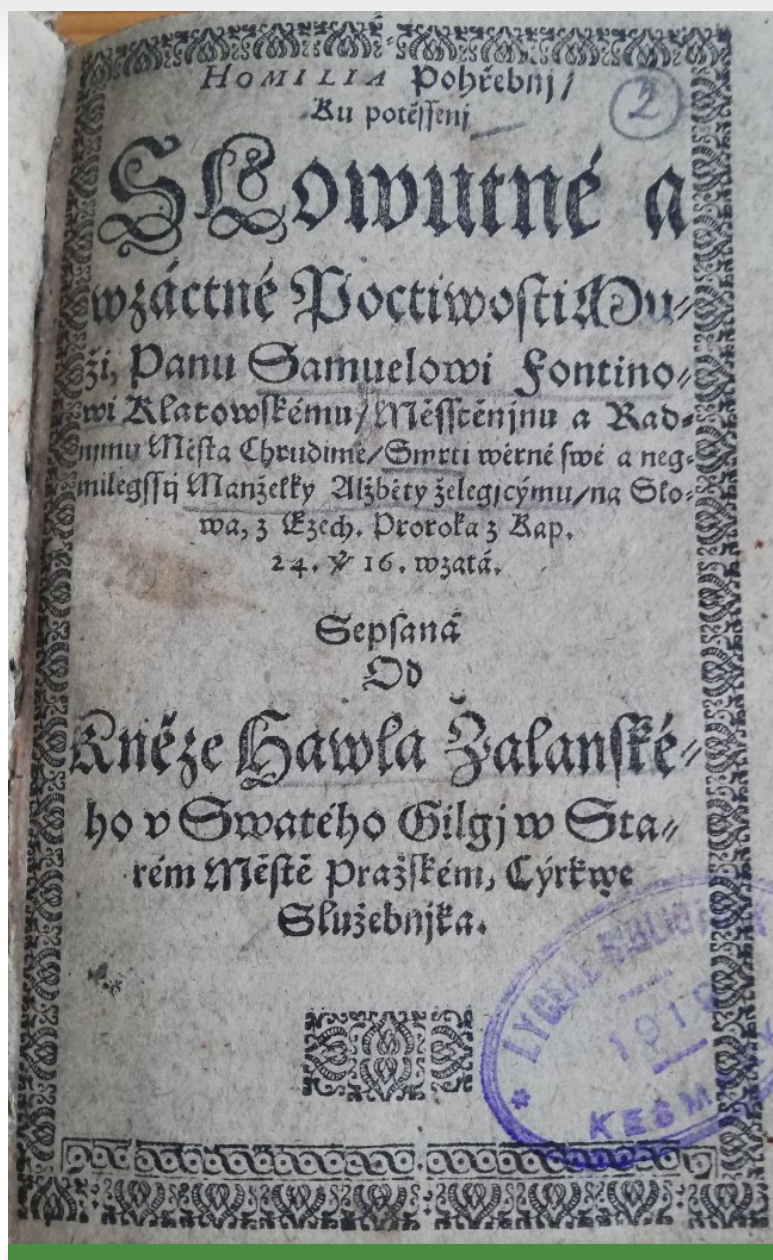 HOMILIA Pohřebnj/
Ku potěssenj
SLowutné a
wzáctné Poctiwosti Mu-
ži, Panu Samuelowi Fontino-
wi Klatowskému/ Měsstěnjnu a Rad-
nimu Města Chrudimě/ Smrti wěrné swé a neg-
milegssij Manželky Alžběty želegjcýmu/ na Slo-
wa, z Ezech. Proroka z Kap.
24. v 16. wzatá.
Sepsaná
Od
Kněze Hawla Žalanské-
ho v Swatého Gilgj w Sta-
rém Městě Pražském, Cýrkwe
Služebnjka.
2
LYCEAL BIBLIOTH
1910
KEŠM